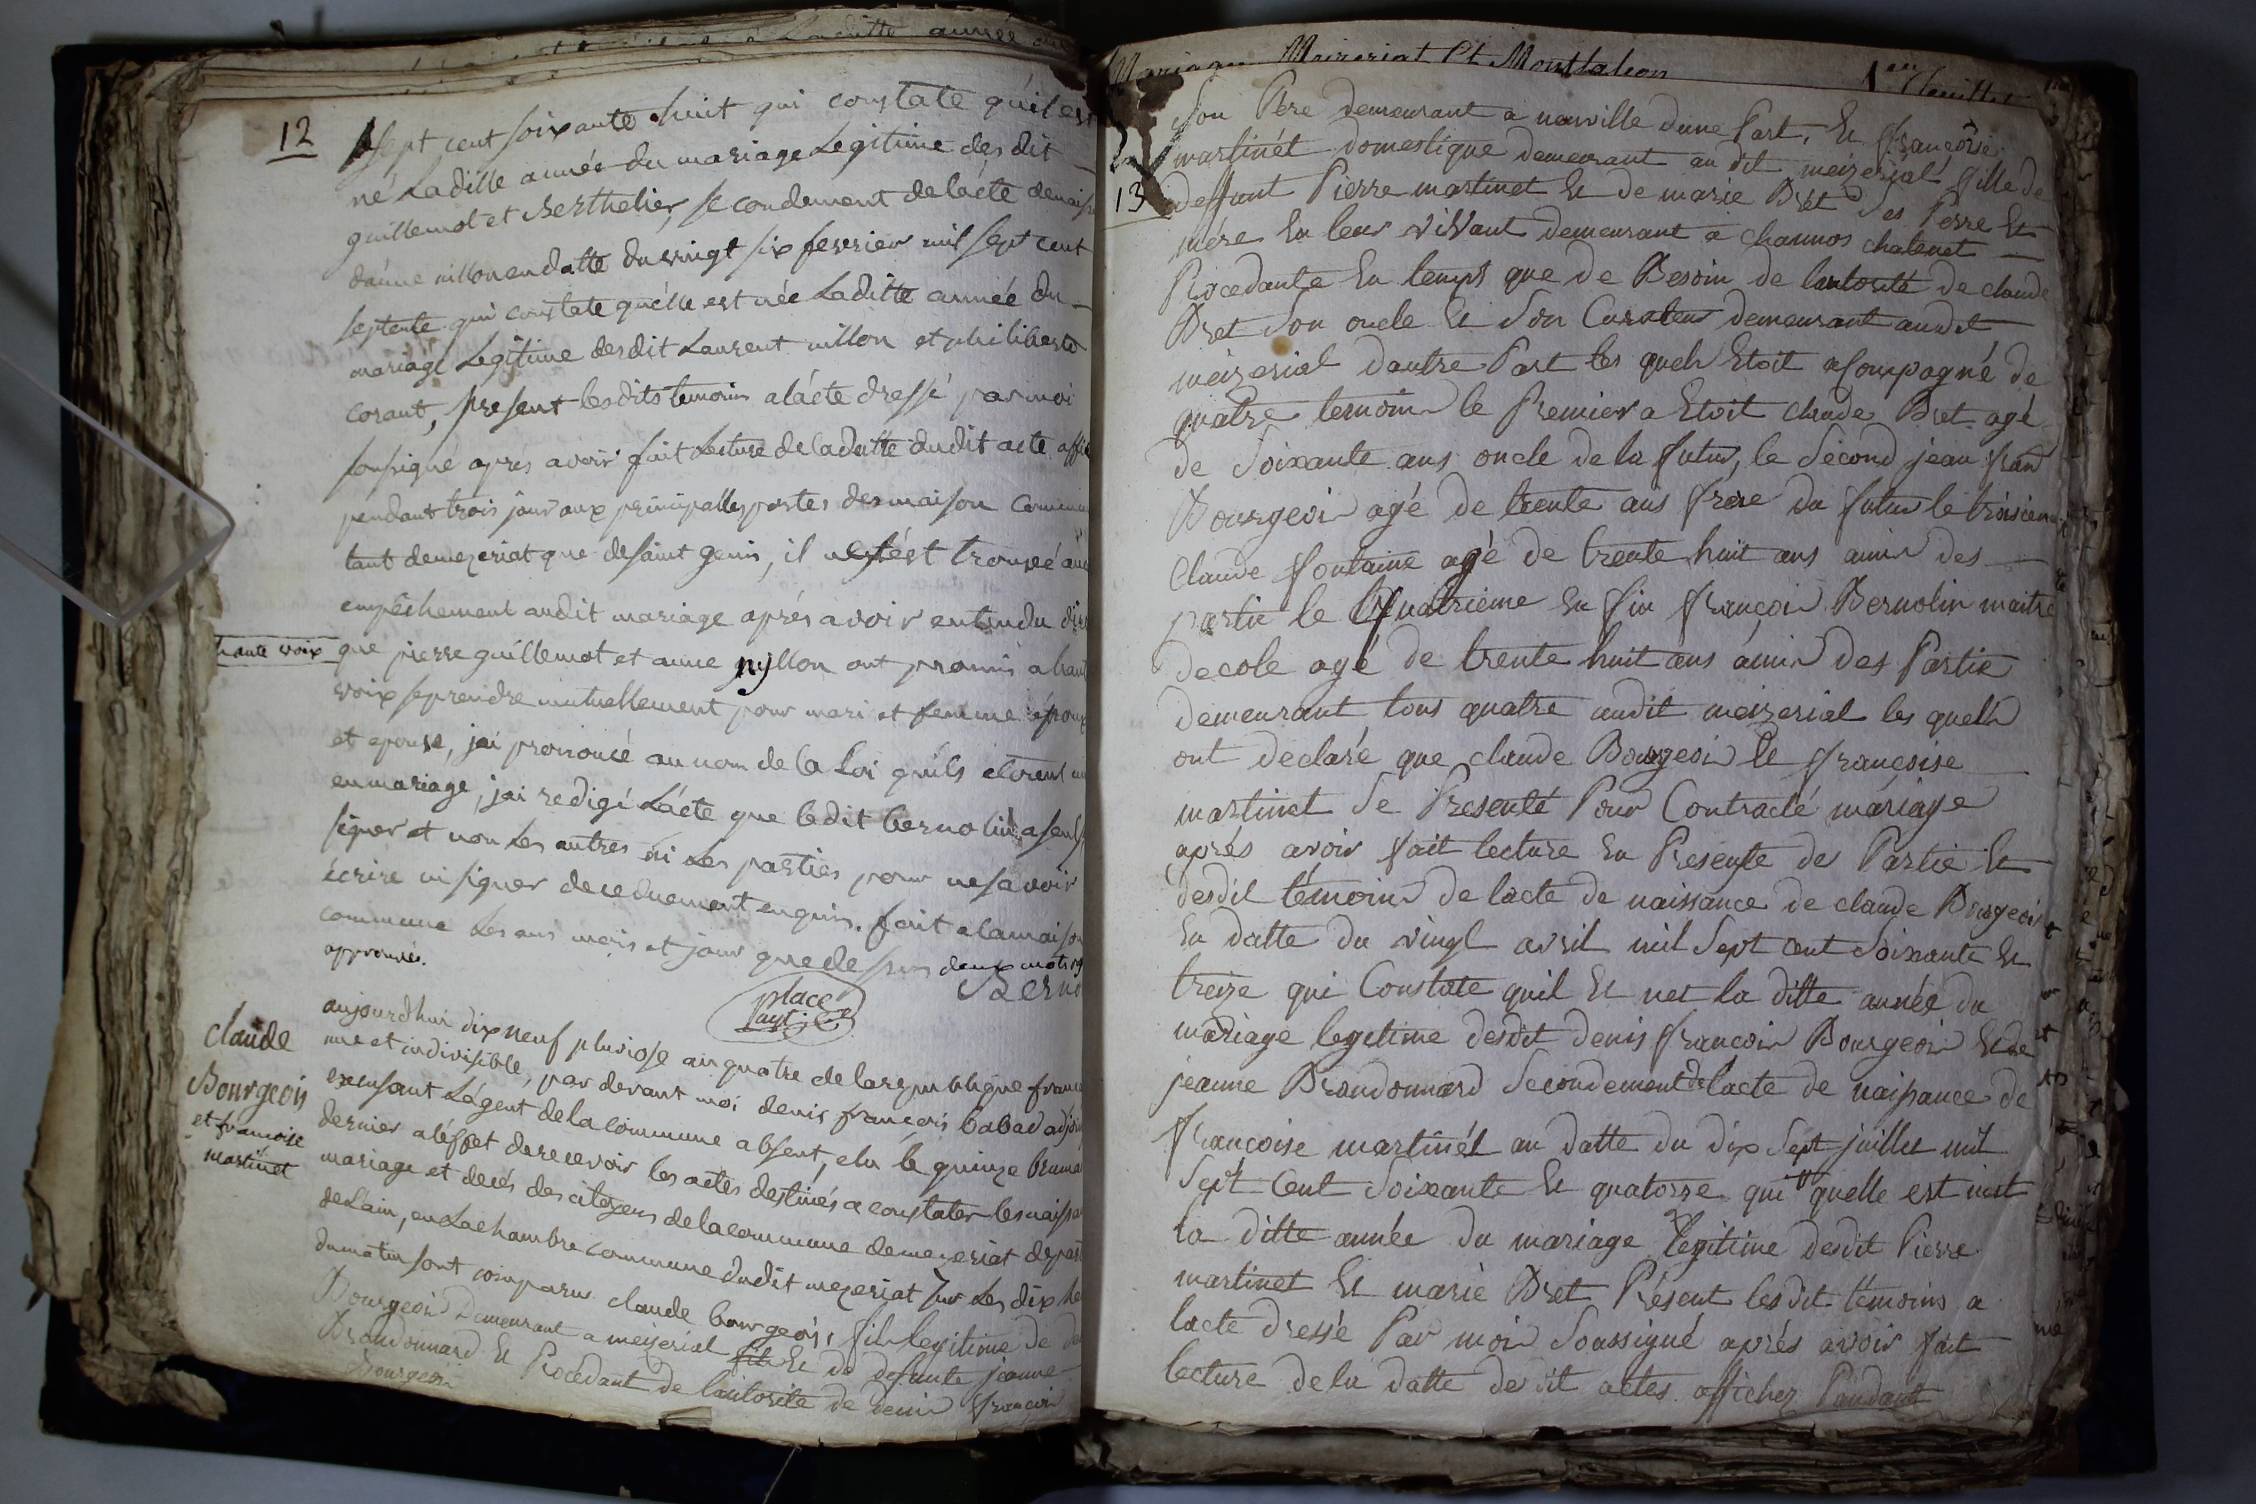 12
sept cent soixante huit qui constate quil est
né Laditte année du mariage Legitime des dit
guillemot et Berthelier, se condement de lácte denaiss
dánne nillon en datte du vingt six fevrier mil sept cent
septente qui constate quélle est née Laditte année du
mariage Legitime desdit Laurent nillon et philiberte
corant, present lesdits temoins a lácte dressé par moi
sousigné apres avoir fait Lecture de ladatte dudit acte affi
pendant trois jour aux principalles portes des maison commun
tant demezeriat que desaint genis, il nést trouvé auc
empêchement audit mariage aprés avoir entendu dire
haute voix
que pierre guillemot et anne nyllon ont promis a haut
voix seprendre mutuellement pour mari et femme époux
et epouse, jai prononcé au nom de la Loi quils etoient un
en mariage, jai redigé Lácte que ledit bernolin a seul
signer et non Les autres ni Les parties pour ne savoir
écrire ni signer de ce duement enquis. fait a lamaison
commune Les ans mois et jour que de sus deux mots
approuvés.
Berno
place
auxt:
Claude
Bourgeois
et francoise
martinet
aujourdhui dix neuf pluviose an quatre de larepublique franc
une et indivisible, par devant moi denis françois babad adjoin
excusant Lágent de la Commune absent, elu le quinze bruma
dernier aléffet derecevoir les actes destinés a constater les naissa
mariage et decés des citoyens de la commune demezeriat depart
de Láin, en La chambre commune dudit mezeriat sur Les dix he
du matin sont comparu claude bourgeois, fils legitime de de
Bourgeois Demeurant a meizeriat fils Et de defunte jeanne
Brandonnard Et Procédant de lautorite de denis francois
Bourgeois
Mariage Meizeriat Et Montfalcon
1er feuillet
13
Son Père demeurant a neuville dune Part, Et francoise
martinét domestique demeurant au dit meizeriat fille de
deffunt Pierre martinet Et de marie Bret Ses Perre Et
mére En leur vivant demeurant a channos chatenet
Procedante En temps que de Besoin de lautorité de claude
Bret Son oncle Et Son Curateur demeurant audit
meizeriat dautre Part les quels Etoit acompagné de
quatre temoins le Premier a Etoit claude Bret agé
de Soixante ans oncle de la futur, le Second jean fran
Bourgeois agé de trente ans frere du futur le troisieme
Claude fontaine agé de trente huit ans amis des
partie le Quatrieme En fin francois Bernolin maitre
decole agé de trente huit ans ámis des Partie
demeurant tous quatre audit meizeriat les quells
ont declaré que claude Bourgeois Et francoise
martinet Se Presenté Pour Contracté máriage
aprés avoir fait lecture En Presente des Partie Et
desdit témoins de lacte de naissance de claude Bourgeois
En datte du vingt avril mil Sept cent Soixante Et
treize qui Constate quil Et net la ditte année du
mariage legitime desdit denis francois Bourgeois Et de
jeanne Brandonnard Secondement de lacte de naissance de
francoise martinét au datte du dix Sept juillet mil
Sept Cent Soixante Et quatorze qui quelle est nest
la ditte année du mariage legitime desdit Pierre
martinet Et marie Bret Présent lesdit témoins a
lacte dressé Par moi Soussigné aprés avoir fait
lecture de la datte desdit actes affichez Pandant